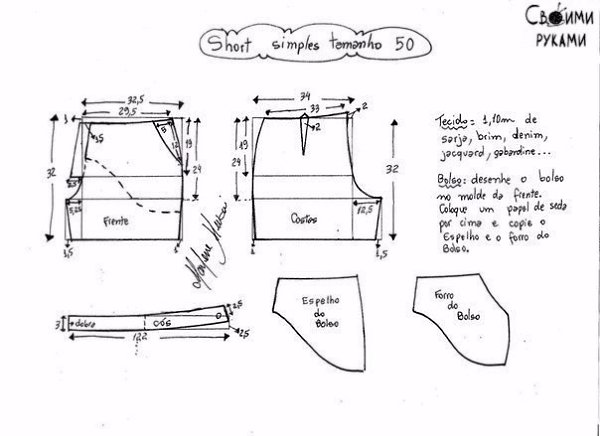 СВОИМИ
РУКАМИ
Short simples tamanho 50
32,5
29,5
1
3,5
5
12
19
24
32
5,25
1,5
1
Frente
34
33
2
2
19
24
32
12,5
1
1,5
Costas
Tecido: 1,10m de
sarja, brim, denim,
jacquard, gabardine...
Bolso: desenhe o bolso
no molde da frente.
Coloque um papel de seda
por cima e copie o
Espelho e o forro do
Bolso.
2,5
3
dobra
cós
122
2,5
Espelho
do
Bolso
Forro
do
Bolso